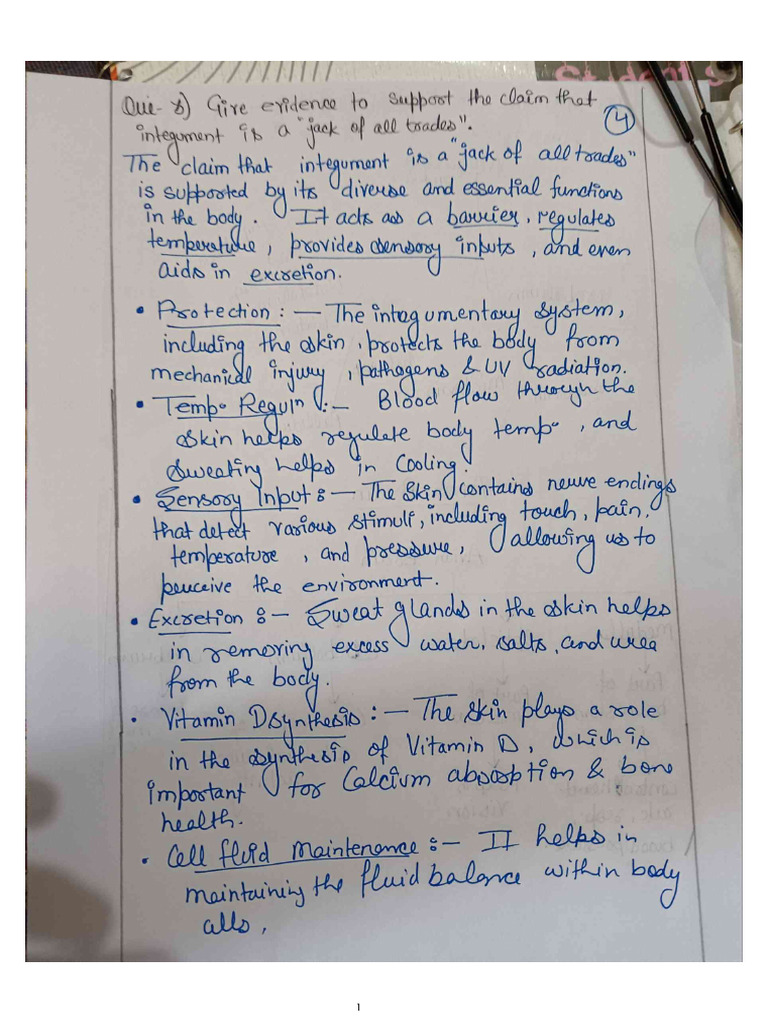 Que-8) Give evidence to support the claim that
integument is a "jack of all trades".
4
The claim that integument is a "jack of all trades"
is supported by its diverse and essential functions
in the body. It acts as a barrier, regulates
temperature, provides sensory inputs, and even
aids in excretion.
• Protection :— The integumentary system,
including the skin, protects the body from
mechanical injury, pathogens & UV radiation.
• Temp. Reguln :— Blood flow through the
skin helps regulate body temp., and
sweating helps in cooling.
• Sensory Input :— The skin contains nerve endings
that detect various stimuli, including touch, pain,
temperature, and pressure, allowing us to
perceive the environment.
• Excretion :— Sweat glands in the skin helps
in removing excess water, salts, and urea
from the body.
• Vitamin D synthesis :— The skin plays a role
in the synthesis of Vitamin D, which is
important for Calcium absorption & bone
health.
• Cell fluid maintenance :— It helps in
maintaining the fluid balance within body
cells,
1